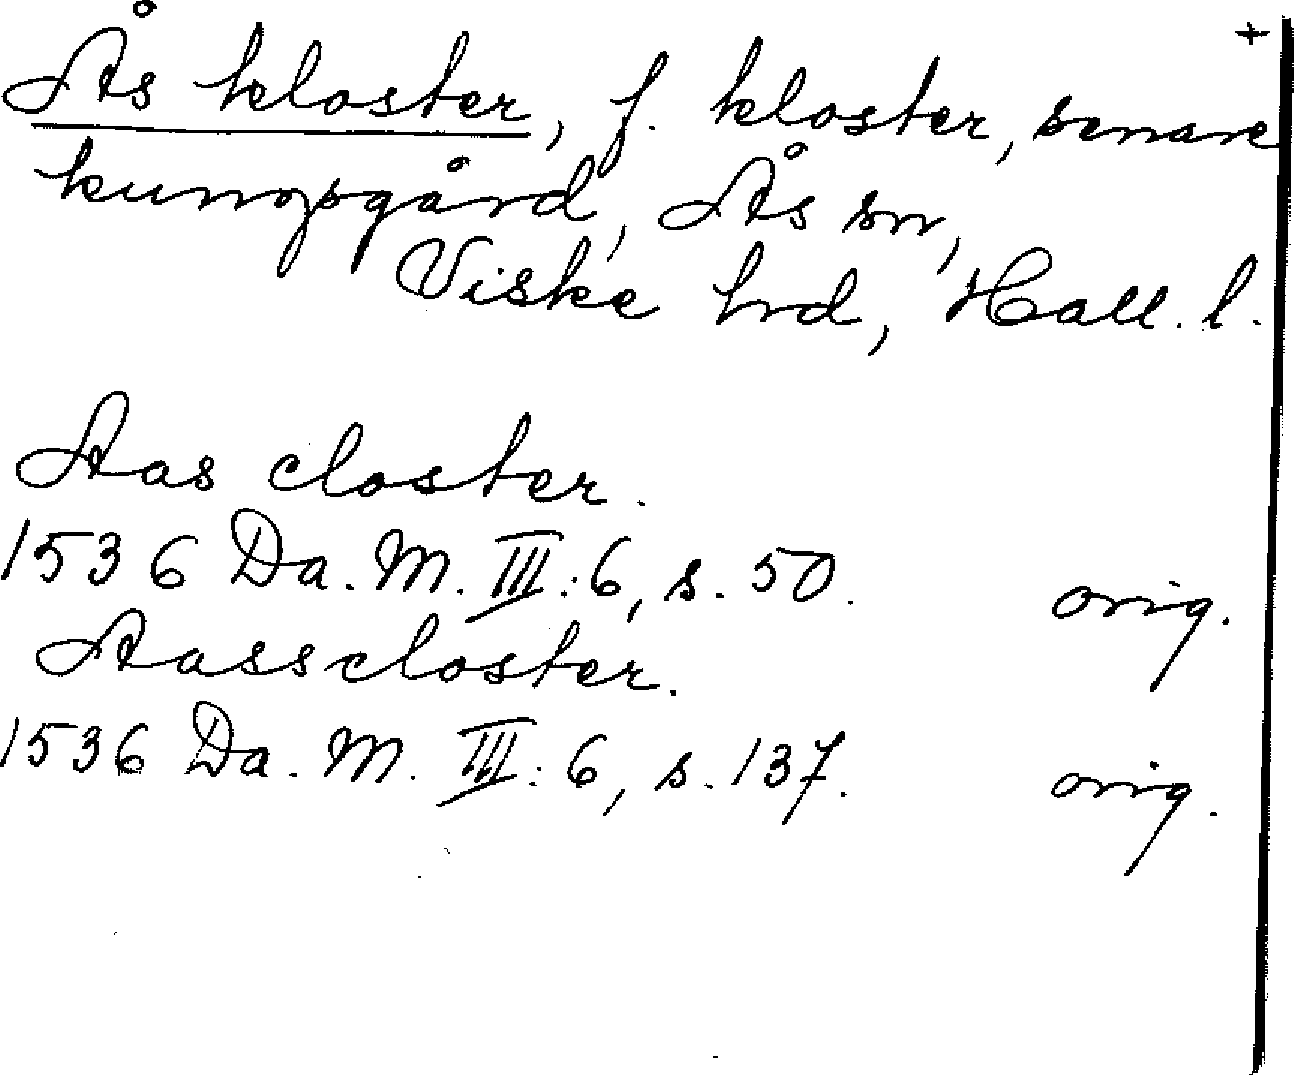 +
Ås kloster, f. kloster, senare
kungsgård, Ås sn,
Viske hrd, Hall. l.
Aas closter.
1536 Da. M. III: 6, s. 50. orig.
Aasscloster.
1536 Da. M. III: 6, s. 137. orig.